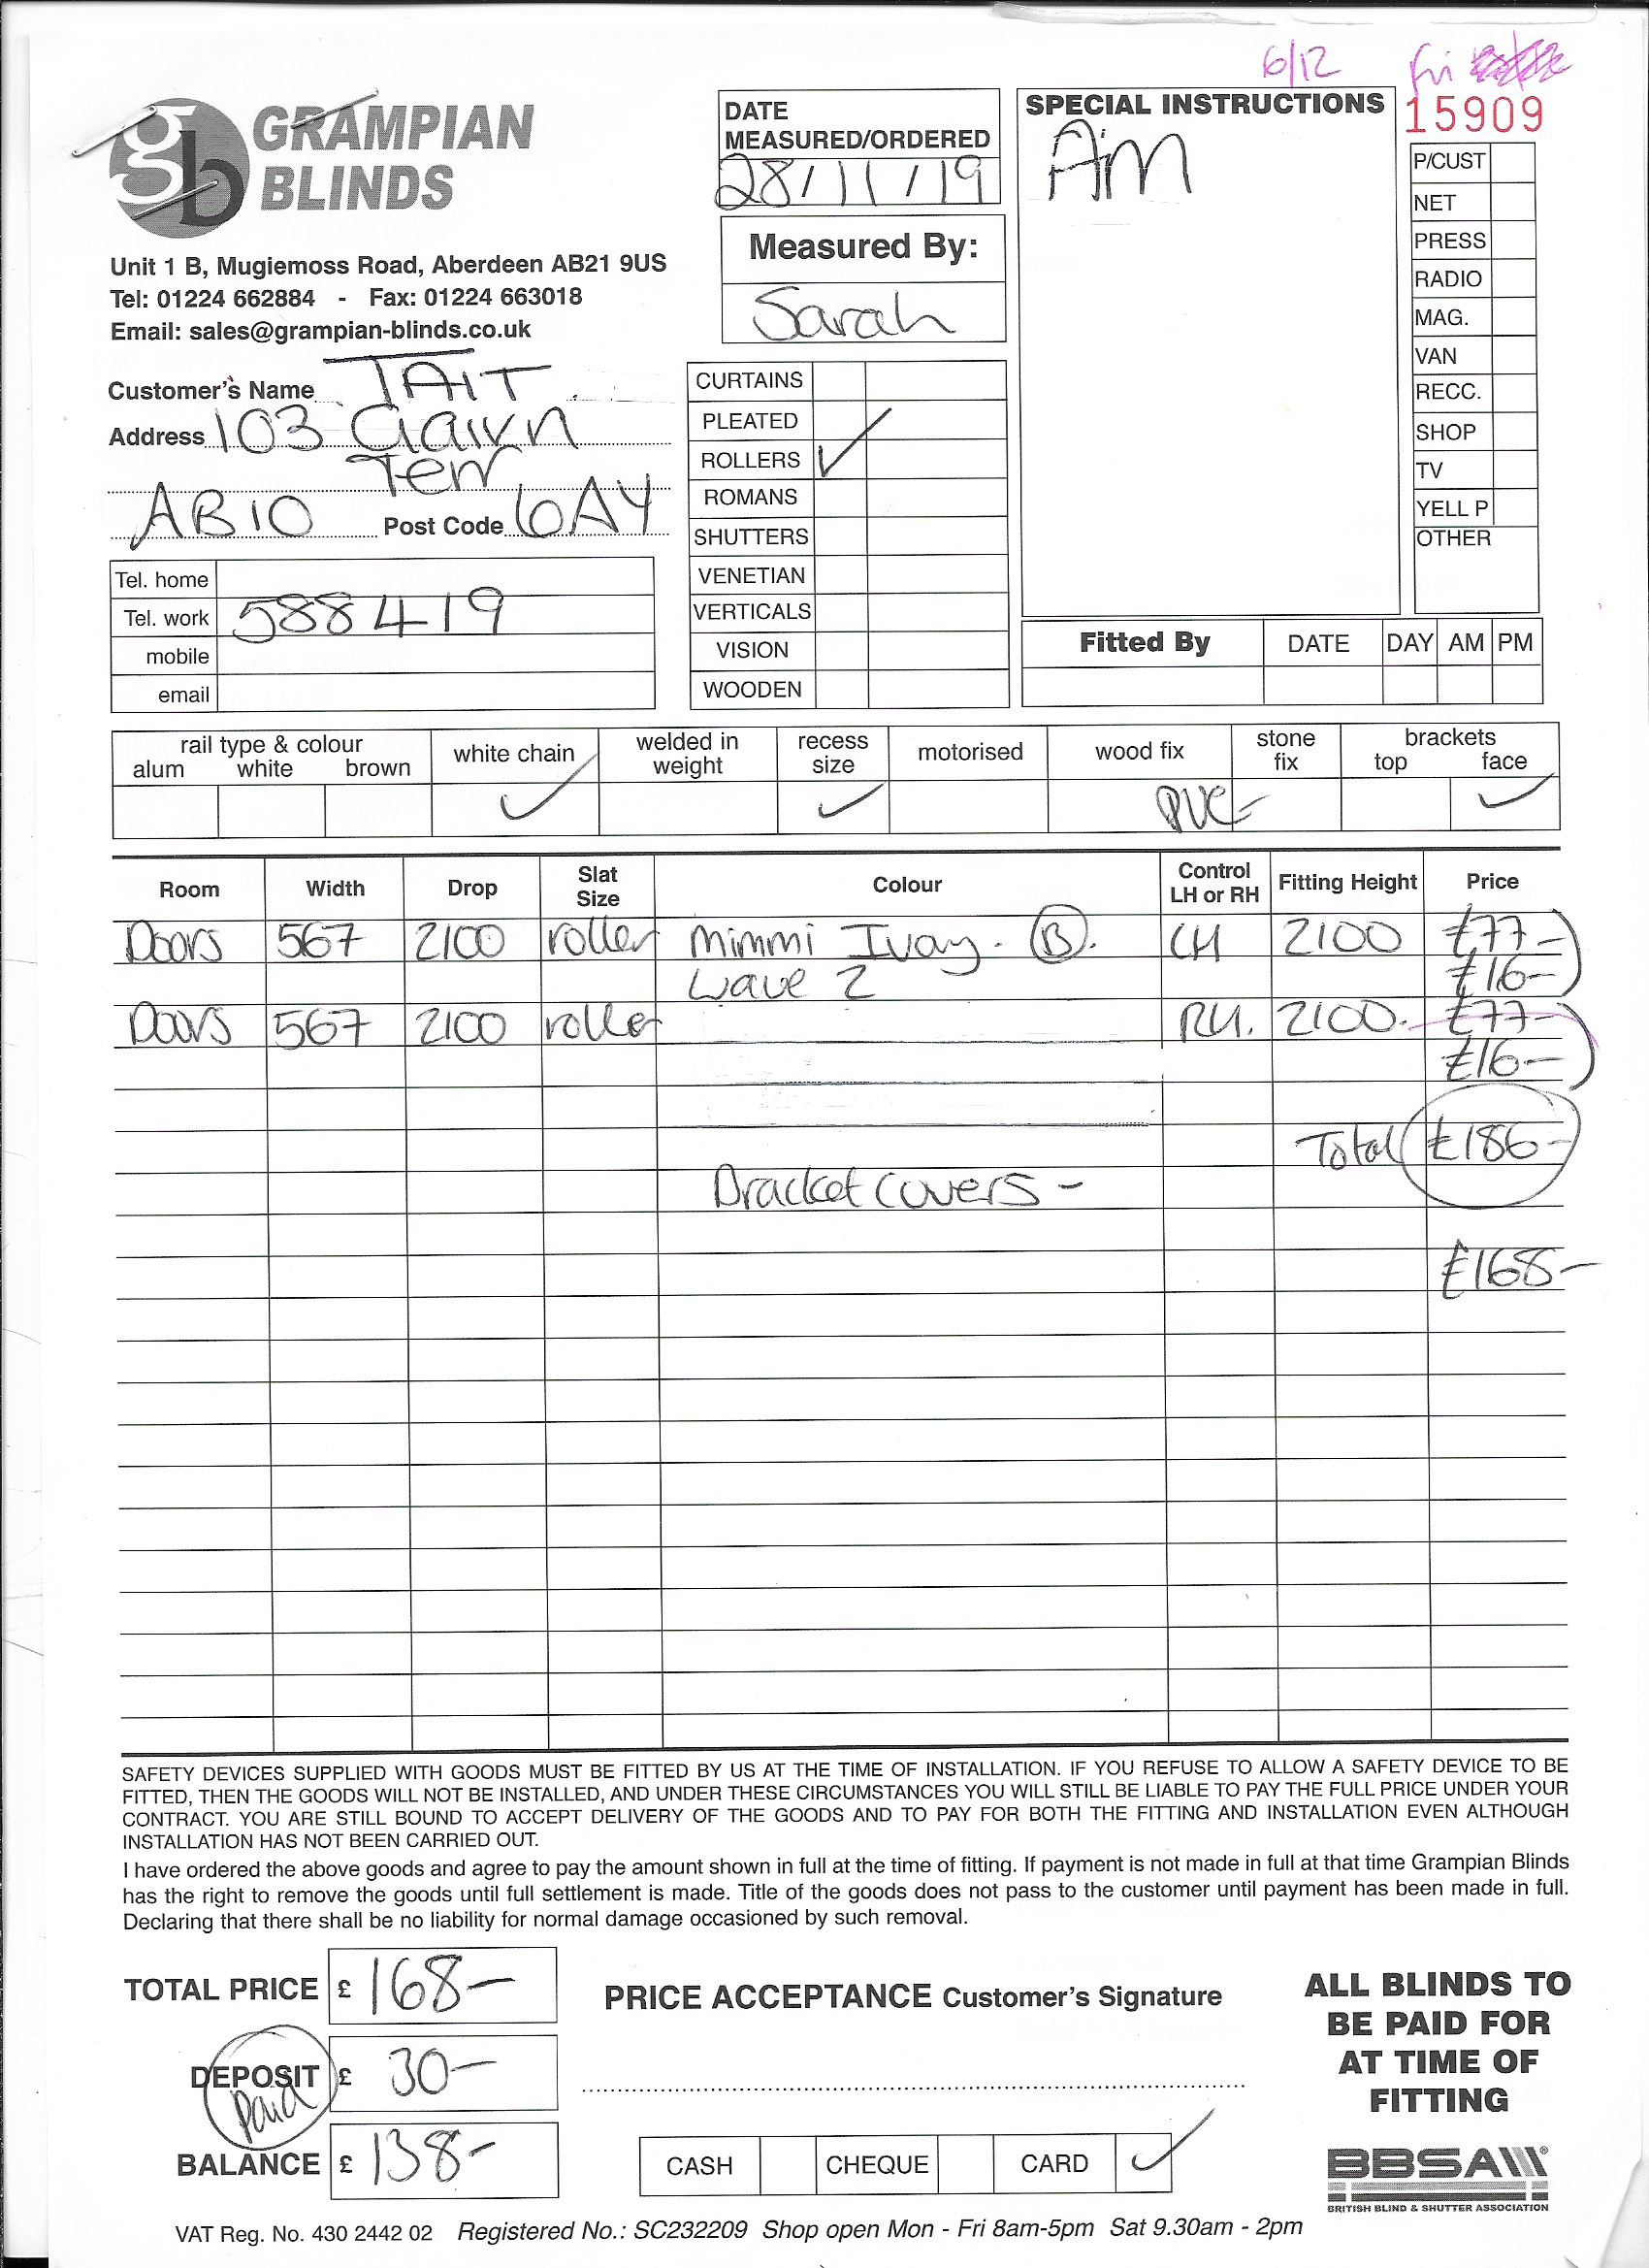 6/12 Fri
GRAMPIAN
BLINDS
Unit 1 B, Mugiemoss Road, Aberdeen AB21 9US
Tel: 01224 662884 - Fax: 01224 663018
Email: sales@grampian-blinds.co.uk
DATE
MEASURED/ORDERED
28/11/19
Measured By:
Sarah
SPECIAL INSTRUCTIONS
AM
15909
P/CUST
NET
PRESS
RADIO
MAG.
VAN
RECC.
SHOP
TV
YELL P
OTHER
Customer's Name TAIT
Address 103 Gairn
Terr
AB10 Post Code 6AY
Tel. home
Tel. work 588419
mobile
email
CURTAINS
PLEATED
ROLLERS ✓
ROMANS
SHUTTERS
VENETIAN
VERTICALS
VISION
WOODEN
Fitted By DATE DAY AM PM
rail type & colour
alum white brown
white chain ✓
welded in
weight
recess
size ✓
motorised
wood fix
PVC-
stone
fix
brackets
top face ✓
Room Width Drop Slat Size Colour Control LH or RH Fitting Height Price
Doors 567 2100 roller Mimmi Ivory. (B). LH 2100 £77-
Wave 2 £16-
Doors 567 2100 roller RH. 2100. £77-
£16-
Total £186-
Bracket covers -
£168-
SAFETY DEVICES SUPPLIED WITH GOODS MUST BE FITTED BY US AT THE TIME OF INSTALLATION. IF YOU REFUSE TO ALLOW A SAFETY DEVICE TO BE
FITTED, THEN THE GOODS WILL NOT BE INSTALLED, AND UNDER THESE CIRCUMSTANCES YOU WILL STILL BE LIABLE TO PAY THE FULL PRICE UNDER YOUR
CONTRACT. YOU ARE STILL BOUND TO ACCEPT DELIVERY OF THE GOODS AND TO PAY FOR BOTH THE FITTING AND INSTALLATION EVEN ALTHOUGH
INSTALLATION HAS NOT BEEN CARRIED OUT.
I have ordered the above goods and agree to pay the amount shown in full at the time of fitting. If payment is not made in full at that time Grampian Blinds
has the right to remove the goods until full settlement is made. Title of the goods does not pass to the customer until payment has been made in full.
Declaring that there shall be no liability for normal damage occasioned by such removal.
TOTAL PRICE £ 168-
DEPOSIT £ 30-
Paid
BALANCE £ 138-
PRICE ACCEPTANCE Customer's Signature
CASH CHEQUE CARD ✓
ALL BLINDS TO
BE PAID FOR
AT TIME OF
FITTING
BBSA
BRITISH BLIND & SHUTTER ASSOCIATION
VAT Reg. No. 430 2442 02 Registered No.: SC232209 Shop open Mon - Fri 8am-5pm Sat 9.30am - 2pm